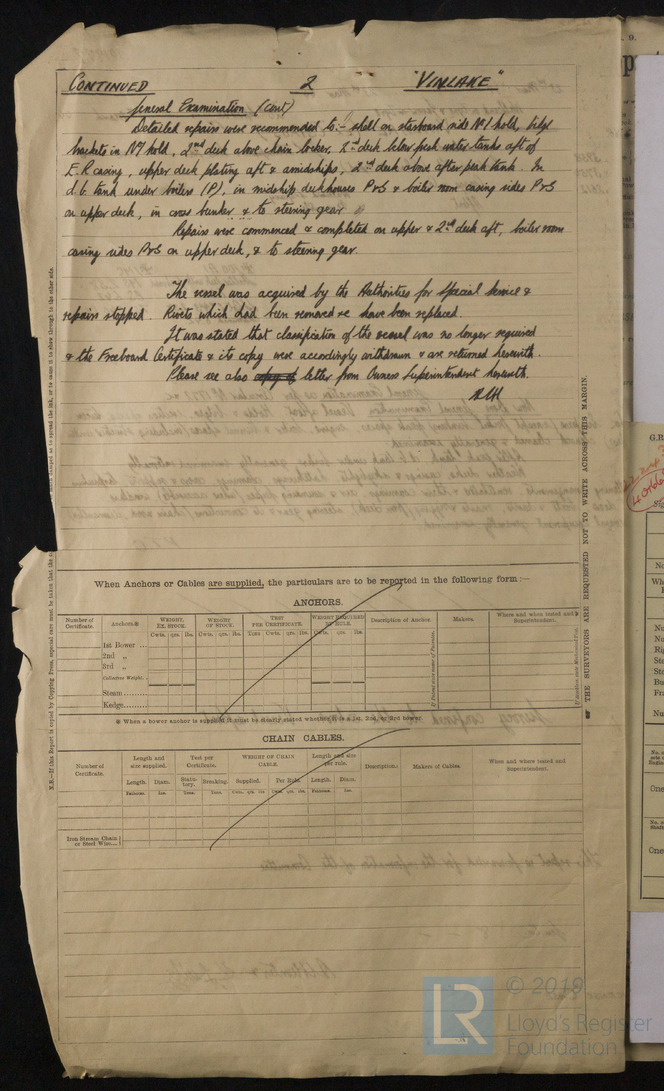 CONTINUED 2 "VINLAKE"
General Examination (Cont)
Detailed repairs were recommended to:- shell on starboard side No 1 hold, bilge
brackets in No 1 hold, 2nd deck above chain locker, 2nd deck below fresh water tanks aft of
E.R casing, upper deck plating aft & amidships, 2nd deck above after peak tank. In
d.b tank under boilers (P), in midship deckhouses P&S & boiler room casing sides P&S
on upper deck, in cross bunker & to steering gear
Repairs were commenced & completed on upper & 2nd deck aft, boiler room
casing sides P&S on upper deck, & to steering gear.
The vessel was acquired by the Authorities for Special Service &
repairs stopped. Rivets which had been removed have been replaced.
It was stated that classification of the vessel was no longer required
& the Freeboard Certificate & its copy were accordingly withdrawn & are returned herewith.
Please see also copy of letter from Owners Superintendent herewith.
When Anchors or Cables are supplied, the particulars are to be reported in the following form :—
ANCHORS.
Number of Certificate. Anchors.※ WEIGHT, EX. STOCK. WEIGHT OF STOCK. TEST PER CERTIFICATE. WEIGHT REQUIRED BY RULE. Description of Anchor. Makers. Where and when tested and Superintendent.
Cwts. qrs. lbs. Cwts. qrs. lbs. Tons Cwts. qrs. lbs. Cwts. qrs. lbs.
1st Bower ...
2nd „
3rd „
Collective Weight.
Stream
Kedge
※ When a bower anchor is supplied it must be clearly stated whether it is a 1st, 2nd, or 3rd bower.
CHAIN CABLES.
Number of Certificate. Length and size supplied. Test per Certificate. WEIGHT OF CHAIN CABLE. Length and size per rule. Description. Makers of Cables. Where and when tested and Superintendent.
Length. Diam. Statutory. Breaking. Supplied. Per Rule. Length. Diam.
Fathoms. Ins. Tons. Tons. Cwts. qrs. lbs. Cwts. qrs. lbs. Fathoms. Ins.
Iron Stream Chain
or Steel Wire
THE SURVEYORS ARE REQUESTED NOT TO WRITE ACROSS THIS MARGIN.
© 2019
LR
Lloyd's Register
Foundation